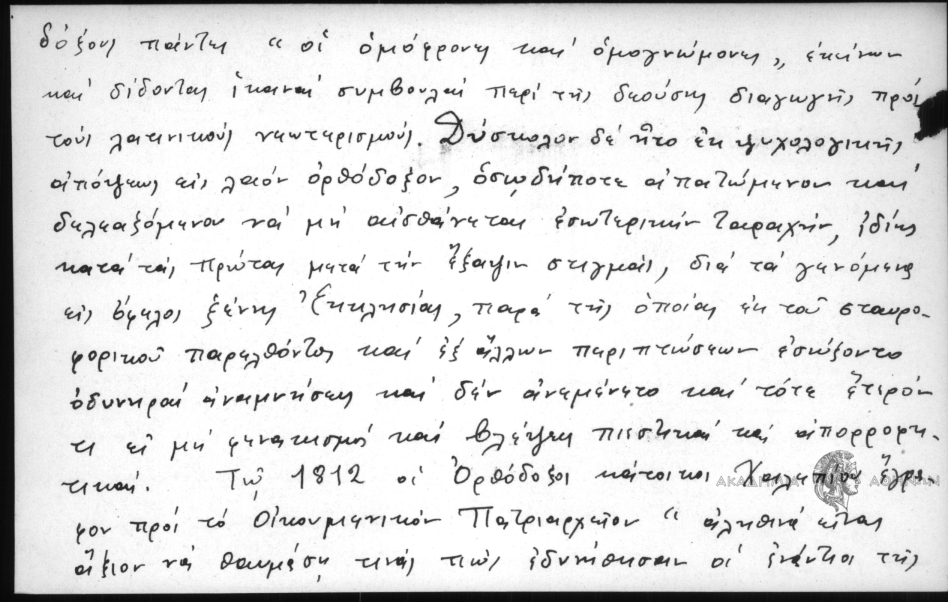 δόξους πάντας "οἱ ὁμόφρονες καί ὁμογνώμονες,, ἐκείνων
καί δίδοντας ἱκαναί συμβουλαί περί τῆς δεούσης διαγωγῆς πρός
τούς λατινικούς νεωτερισμούς. Δύσκολον δέ ἦτο ἐκ ψυχολογικῆς
ἀπόψεως εἰς λαόν ὀρθόδοξον, ὁσῳδήποτε ἀπατώμενον καί
δελεαζόμενον νά μή αἰσθάνεται ἐσωτερικήν ταραχήν, ἰδίως
κατά τάς πρώτας μετά τήν ἔξαψιν στιγμάς, διά τά γενόμενα
εἰς ὄφελος ξένης Ἐκκλησίας, παρά τῆς ὁποίας ἐκ τοῦ σταυρο-
φορικοῦ παρελθόντος καί ἐξ ἄλλων περιπτώσεων ἐσώζοντο
ὀδυνηραί ἀναμνήσεις καί δέν ἀνεμένετο καί τότε ἕτερόν
τι εἰ μή φανατισμός καί βλέψεις πιεστικαί καί ἀπορροφη-
τικαί. Τῷ 1812 οἱ Ὀρθόδοξοι κάτοικοι Χαλεπίου ἔγρα-
φον πρός τό Οἰκουμενικόν Πατριαρχεῖον "ἀληθινά εἶναι
ἄξιον νά θαυμάσῃ τινάς πῶς ἐδυνήθησαν οἱ ἐνάντιοι τῆς
ΑΚΑΔΗΜΙΑ ΑΘΗΝΩΝ